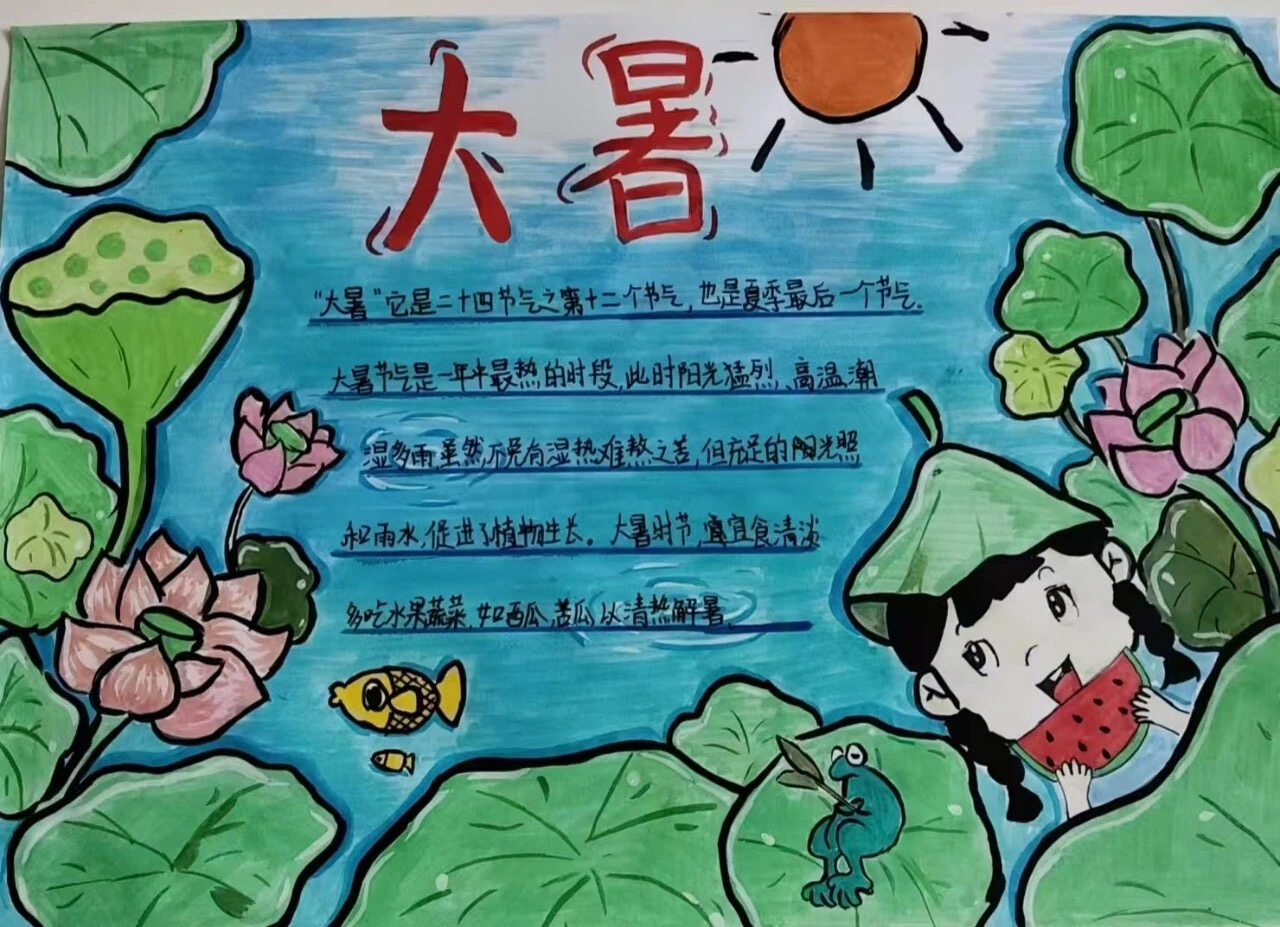 大暑
“大暑”它是二十四节气之第十二个节气,也是夏季最后一个节气.
大暑节气是一年中最热的时段,此时阳光猛烈、高温潮
湿多雨虽然不免有湿热难熬之苦,但充足的阳光照
和雨水,促进了植物生长。大暑时节,宜食清淡
多吃水果蔬菜,如西瓜、苦瓜,以清热解暑.